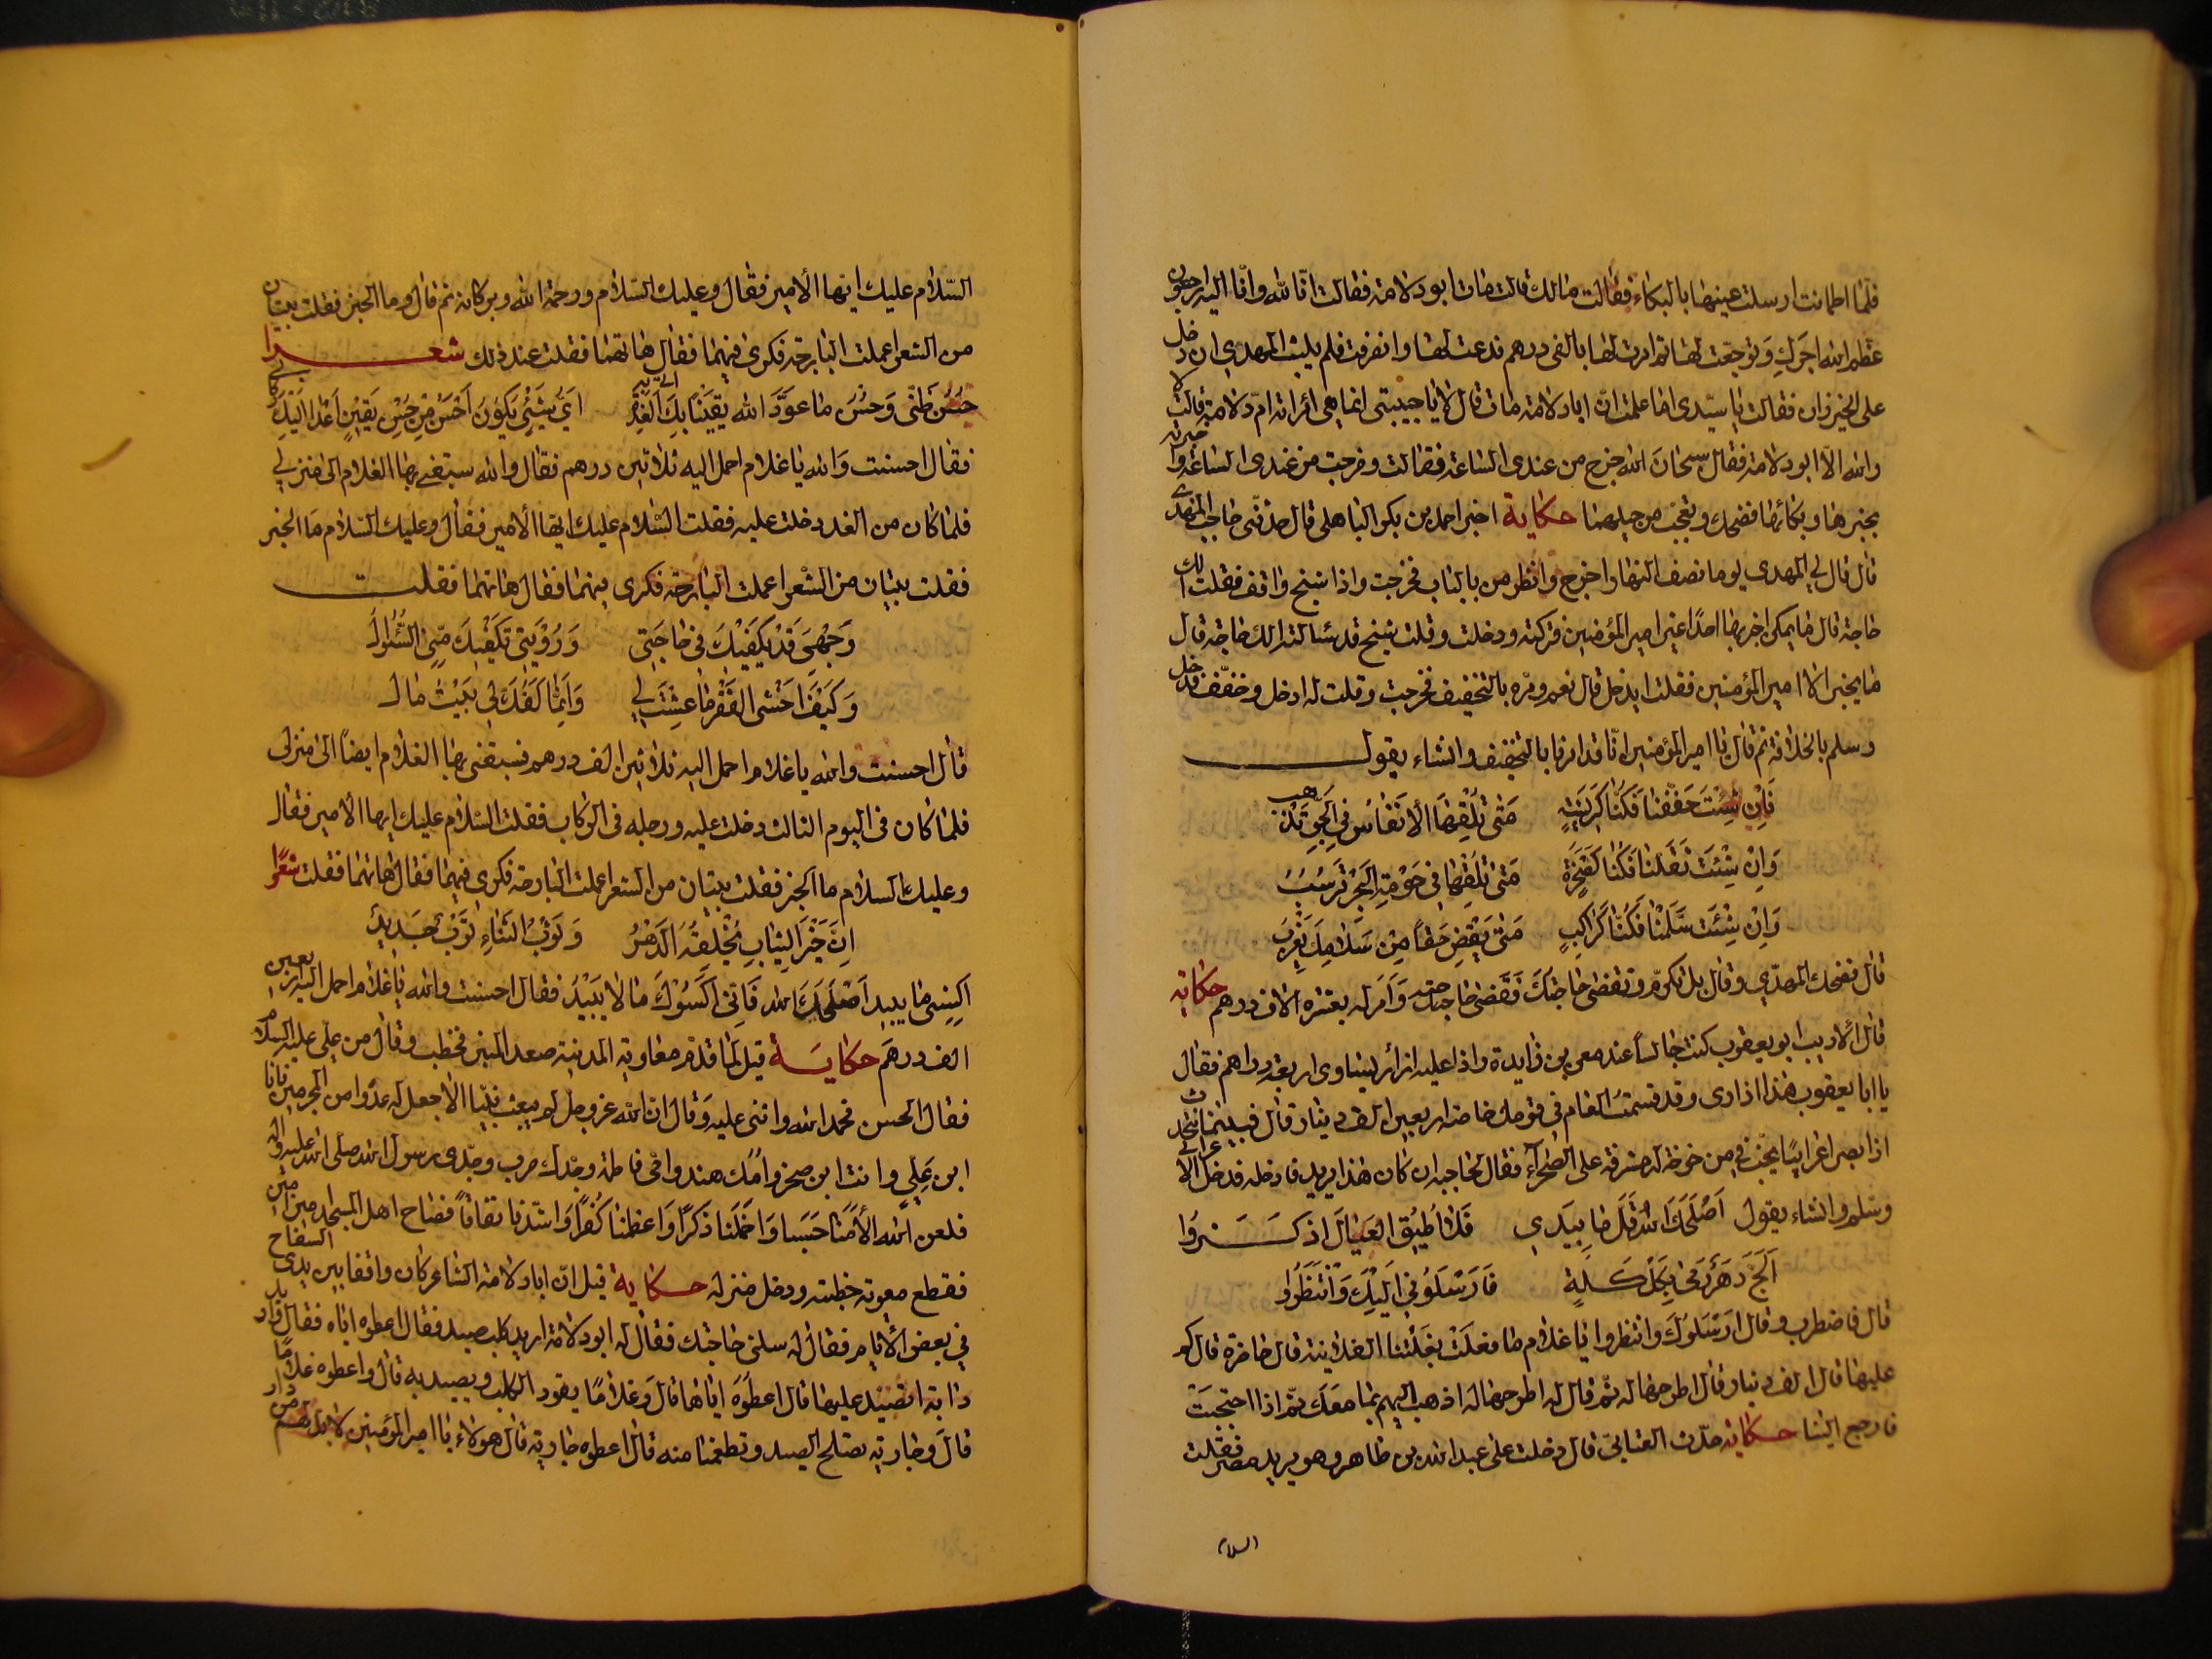 فلما اطمانت ارسلت عينيها بالبكاء فقالت مالك قالت مات ابودلامة فقالت انا لله وانا اليه راجعون
عظم الله اجرك وتوجعت لها ثم امرت لها بالفى درهم فدعت لها وانفرفت فلم يلبث المهدي ان دخل
على الخيزران فقالت يا سيدى اما علمت ان ابا دلامة مات قال لا يا حبيبتى انما هى امراته ام دلامة قالت لا
والله الا ابو دلامة فقال سبحان الله خرج من عندى الساعة فقالت وخرجت من عندى الساعة واخبرته
بخبرها وبكائها فضحك وتعجب من حيلهما حكاية اخبر احمد بن بكر الباهلى قال حدثنى حاجب المهدي
قال قال لي المهدي يوما نصف النهار اخرج وانظر من بالباب فخرجت واذا شيخ واقف فقلت الك
حاجة قال ما يمكن اخبر بها احدا غير امير المؤمنين فتركته ودخلت وقلت شيخ قد سالته الك حاجة قال
ما يخبر الا امير المؤمنين فقلت ايدخل قال نعم ومره بالتخفيف فخرجت وقلت له ادخل وخفف فدخل
وسلم بالخلافة ثم قال يا امير المؤمنين انا قد امرنا بالتخفيف وانشاء يقول
فان شئت خففنا فكنا كريشة متى تلقها الانفاس في الجو تذهب
وان شئت ثقلنا فكنا كصخرة متى تلقها في حومة البحر ترسب
وان شئت سلمنا فكنا كراكب متى يقض حقا من سلامك يغرب
قال فضحك المهدي وقال بل تكرم وتقضى حاجتك فقضى حاجته وامر له بعشرة الاف درهم حكاية
قال الاديب ابو يعقوب كنت جالسا عند معن بن زايدة واذا عليه ازار يساوى اربعة دراهم فقال
يا ابا يعقوب هذا ازارى وقد قسمت العام فى قومك خاصة اربعين الف دينار قال فبينما نتحدث
اذا بصر اعرابيا يخب في من خوخة له مشرفة على الصحراء فقال لحاجبه ان كان هذا يريد فادخله فدخل الاعرابي
وسلم وانشاء يقول اصلحك الله قل ما بيدي فلا اطيق العيال اذ كثروا
الح دهر رمى بكلكله فارسلوني اليك وانتظروا
قال فاضطرب وقال ارسلوك وانتظروا يا غلام ما فعلت بغلتنا الفلانية قال حاضرة قال كم
عليها قال الف دينار قال اطرحها له ثم قال له اطرحها له اذهب اليهم بما معك ثم اذا احتجت
فارجع الينا حكاية حدث العتابى قال دخلت على عبد الله بن طاهر وهو يريد مصر فقلت
السلام
السلام عليك ايها الامير فقال وعليك السلام ورحمة الله وبركاته ثم قال وما الخبر فقلت بيتان
من الشعر اعملت البارحة فكرى فيهما فقال هاتهما فقلت عند ذلك شعرا
حسن ظنى وحسن ما عود الله يقينا بك الغد اي شيئ يكون احسن من حسن يقين اغدا اليك
فقال احسنت والله يا غلام احمل اليه ثلاثين درهم فقال والله سبقنى بها الغلام الى منزلي
فلما كان من الغد دخلت عليه فقلت السلام عليك ايها الامير فقال وعليك السلام ما الخبر
فقلت بيتان من الشعر اعملت البارحة فكرى فيهما فقال هاتهما فقلت
وجهى قد يكفيك في حاجتى ورؤيتي تكفيك منى السؤال
وكيف اخشى الفقر ما عشت لي وانما كفك لي بيت مال
قال احسنت والله يا غلام احمل اليه ثلاثين الف درهم فسبقنى بها الغلام ايضا الى منزلى
فلما كان فى اليوم الثالث دخلت عليه ورجله فى الركاب فقلت السلام عليك ايها الامير فقال
وعليك السلام ما الخبر فقلت بيتان من الشعر اعملت البارحة فكرى فيهما فقال هاتهما فقلت شعرا
ان خير الثياب يخلقه الدهر وثوب الثناء ثوب جديد
اكسنى ما يبيد اصلحك الله فانى اكسوك ما لا يبيد فقال احسنت والله يا غلام احمل اليه اربعين
الف درهم حكاية قيل لما قدم معاوية المدينة صعد المنبر فخطب وقال من علي عليه السلام
فقال الحسن فحمد الله واثنى عليه وقال ان الله عز وجل لم يبعث نبيا الا جعل له عدوا من المجرمين فانا
ابن علي وانت ابن صخر وامك هند وامى فاطمة وجدك حرب وجدى رسول الله صلى الله عليه واله
فلعن الله الأمنا حسبا واخملنا ذكرا واعظمنا كفرا واشدنا نفاقا فصاح اهل المسجد امين امين
فقطع معوية خطبته ودخل منزله حكاية قيل ان ابا دلامة الشاعر كان واقفا بين يدى السفاح
في بعض الايام فقال له سلنى حاجتك فقال له ابو دلامة اريد كلب صيد فقال اعطوه اياه فقال واريد
دابة اتصيد عليها قال اعطوه اياها قال وغلاما يقود الكلب ويصيد به قال واعطوه غلاما
قال وجارية تصلح الصيد وتطعمنا منه قال اعطوه جارية قال هولاء يا امير المؤمنين لا بد لهم من دار